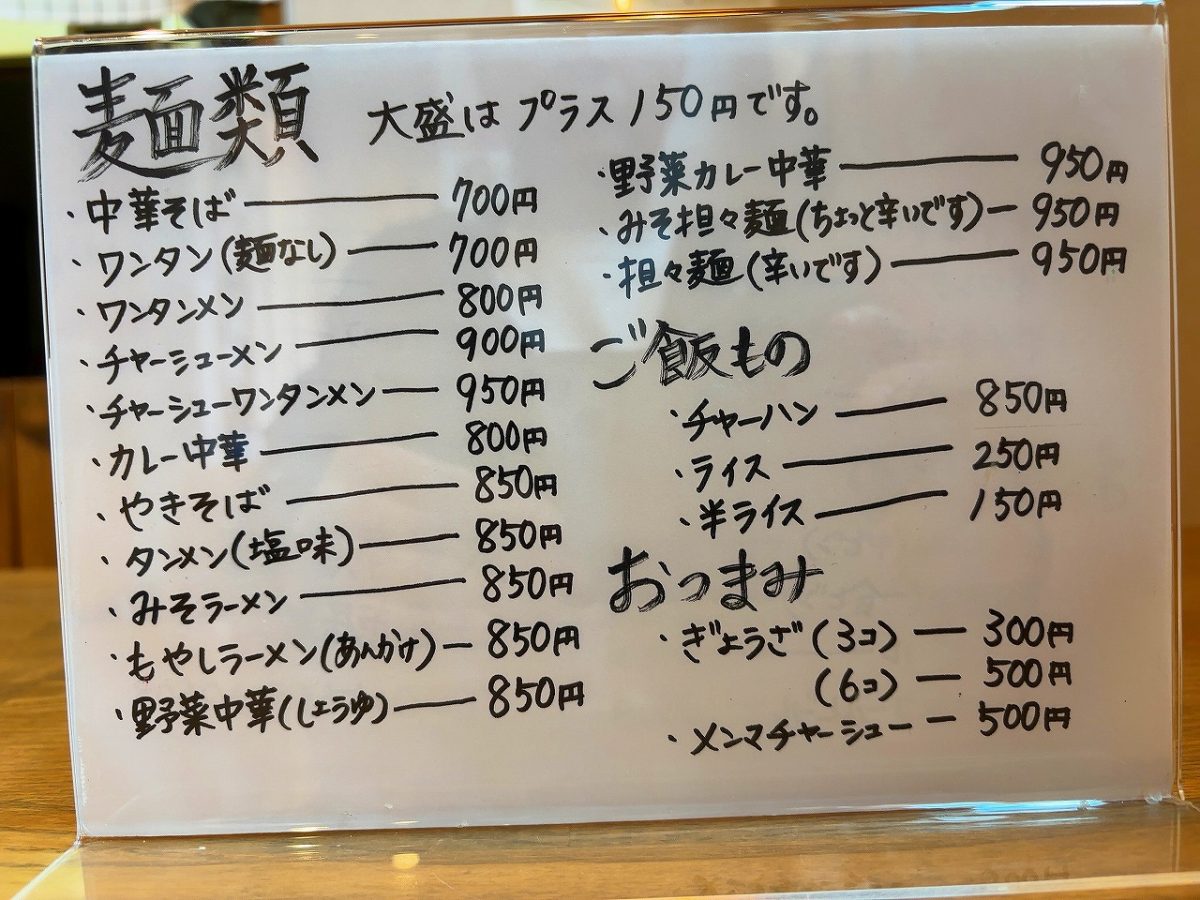 麺類 大盛はプラス150円です。
・中華そば 700円
・ワンタン(麺なし) 700円
・ワンタンメン 800円
・チャーシューメン 900円
・チャーシューワンタンメン 950円
・カレー中華 800円
・やきそば 850円
・タンメン(塩味) 850円
・みそラーメン 850円
・もやしラーメン(あんかけ) 850円
・野菜中華(しょうゆ) 850円
・野菜カレー中華 950円
・みそ担々麺(ちょっと辛いです) 950円
・担々麺(辛いです) 950円
ご飯もの
・チャーハン 850円
・ライス 250円
・半ライス 150円
おつまみ
・ぎょうざ(3コ) 300円
(6コ) 500円
・メンマチャーシュー 500円